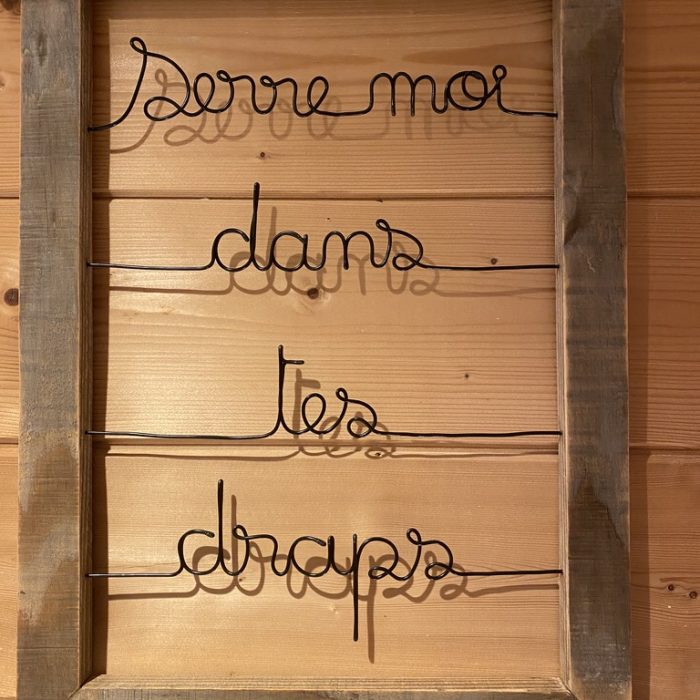 serre moi
dans
tes
draps